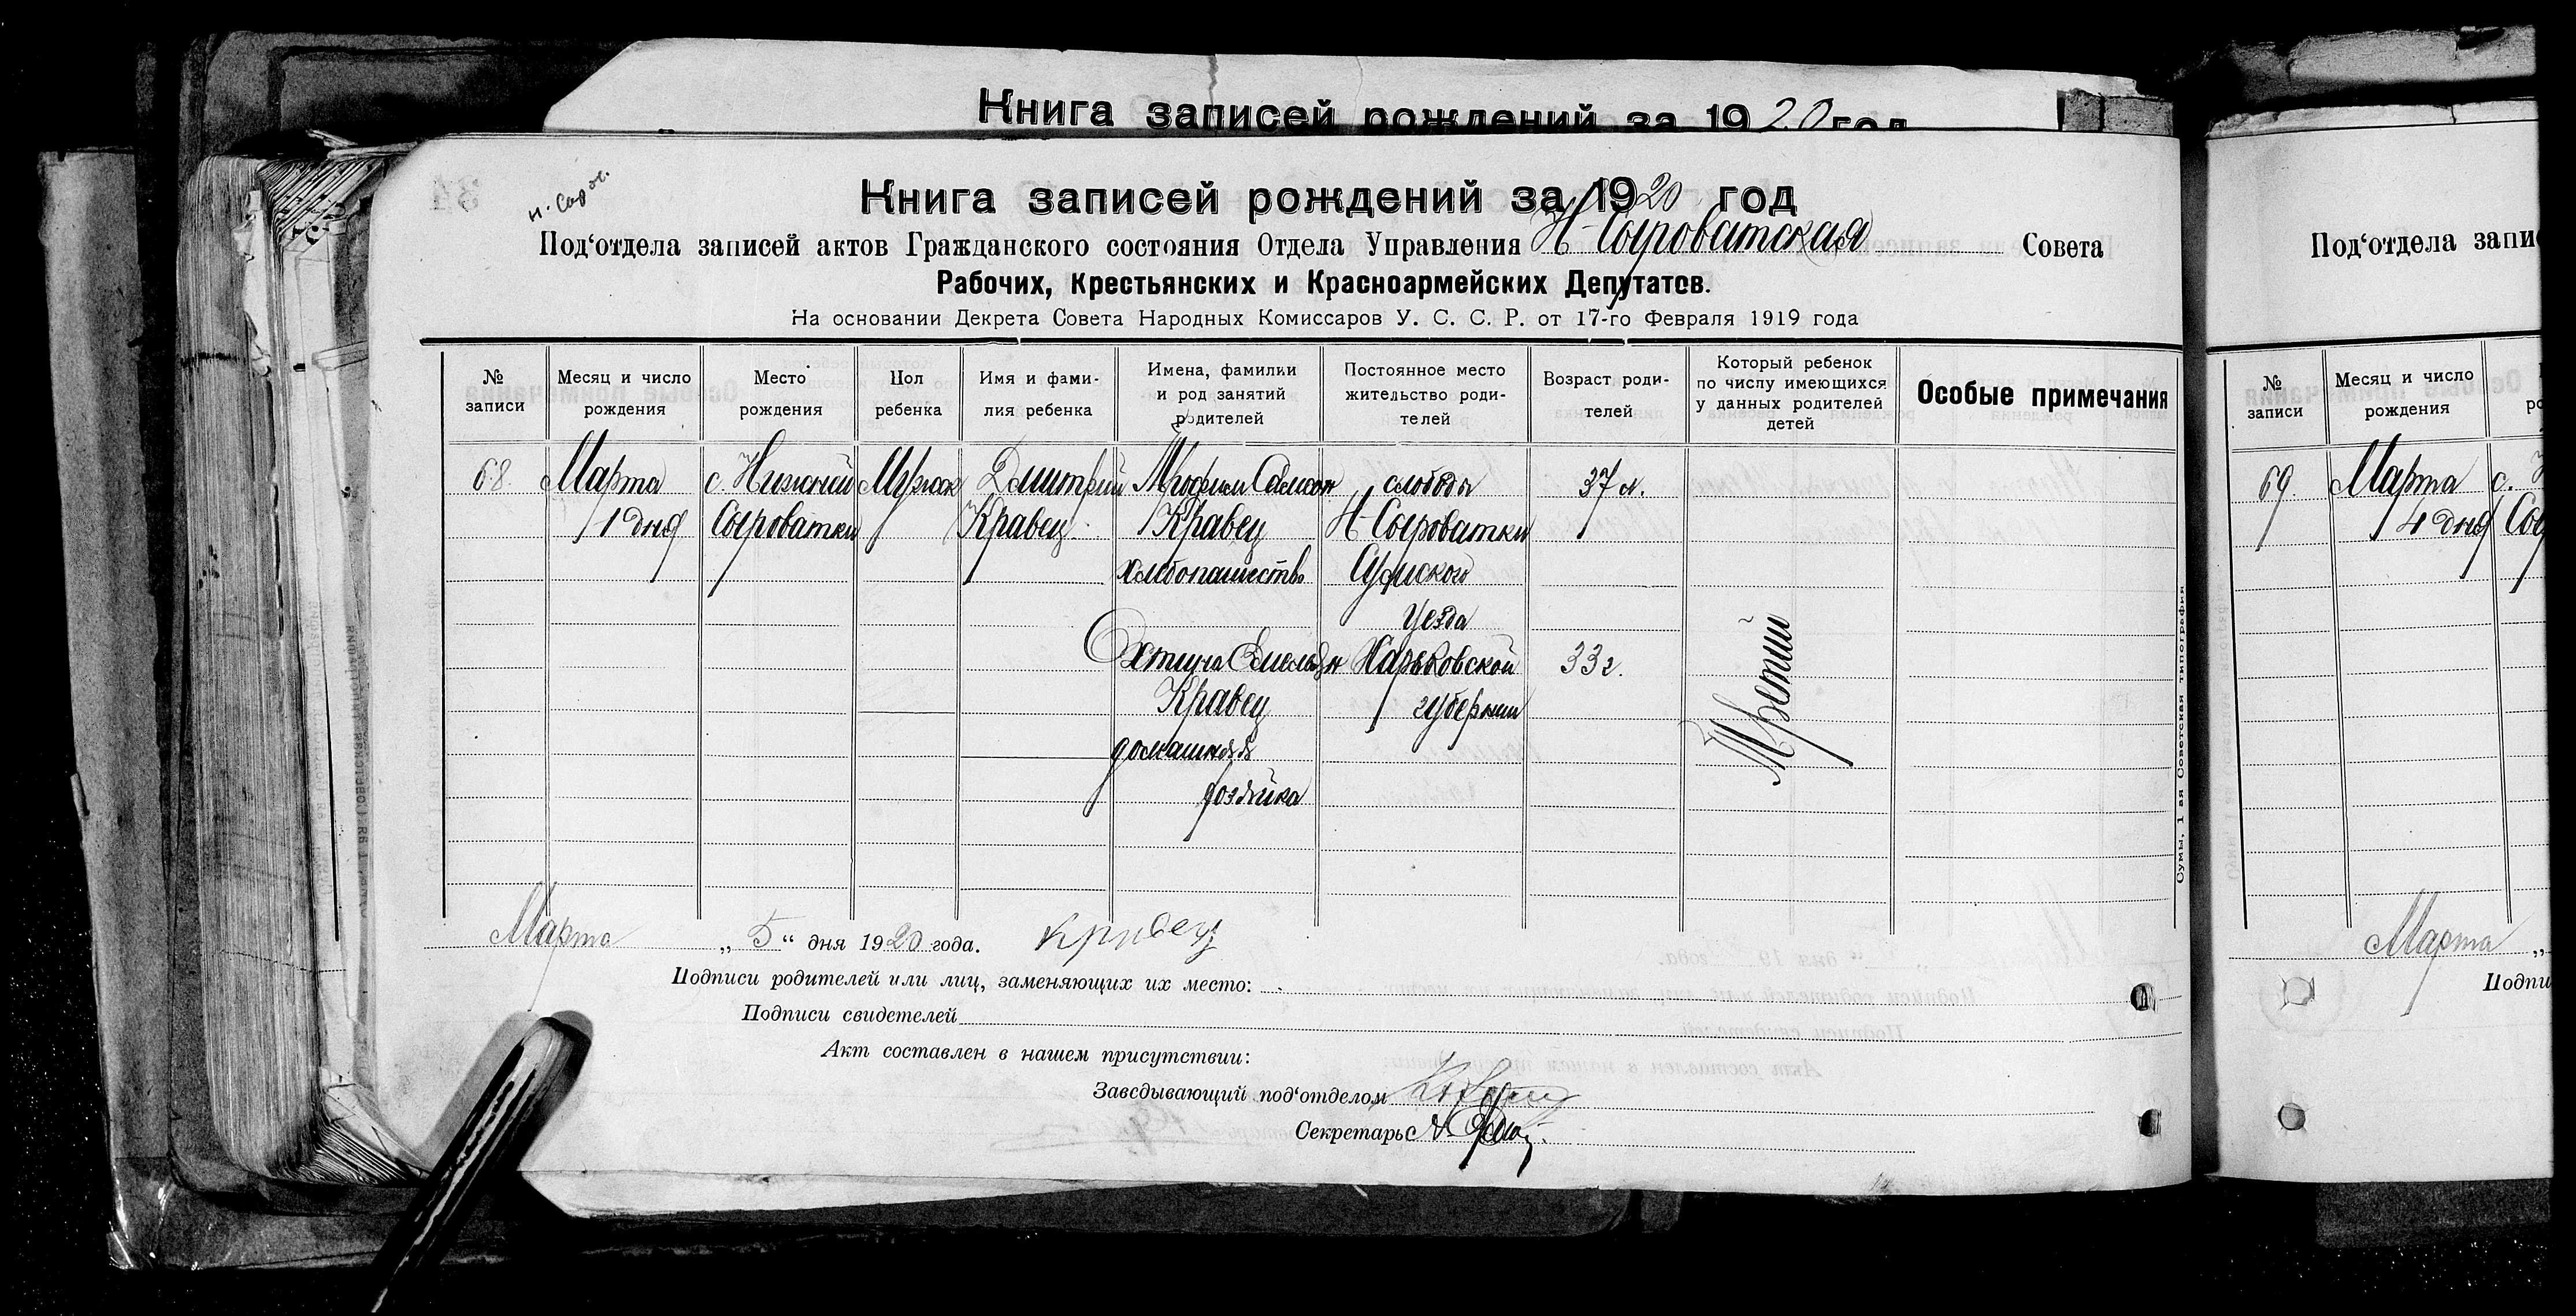 Книга записей рождений за 1920 год
н. Сорос.
Книга записей рождений за 1920 год
Под‘отдела записей актов Гражданского состояния Отдела Управления Н-Сыроватская Совета
Рабочих, Крестьянских и Красноармейских Депутатов.
На основании Декрета Совета Народных Комиссаров У. С. С. Р. от 17-го Февраля 1919 года
№ записи
Месяц и число рождения
Место рождения
Пол ребенка
Имя и фами-
лия ребенка
Имена, фамилии
и род занятий
родителей
Постоянное место
жительство роди-
телей
Возраст роди-
телей
Который ребенок
по числу имеющихся
у данных родителей
детей
Особые примечания
68.
Марта
1 дня
с. Нижний
Сыроватки
Мужск
Дмитрий
Кравец
Трофим Самсон
Кравец
хлебопашество
Евтина Емельян
Кравец
домашняя
хозяйка
слобода
Н-Сыроватки
Сумского
уезда
Харьковской
губернии
37 л.
33 г.
Третий
Сумы, 1-ая Советская типография
Марта „5“ дня 1920 года. Кривец
Подписи родителей или лиц, заменяющих их место:
Подписи свидетелей
Акт составлен в нашем присутствии:
Заведывающий под‘отделом
Секретарь
Под‘отдела запи
№ записи
Месяц и число рождения
69.
Марта
4 дня
с.
Марта „
Подпи